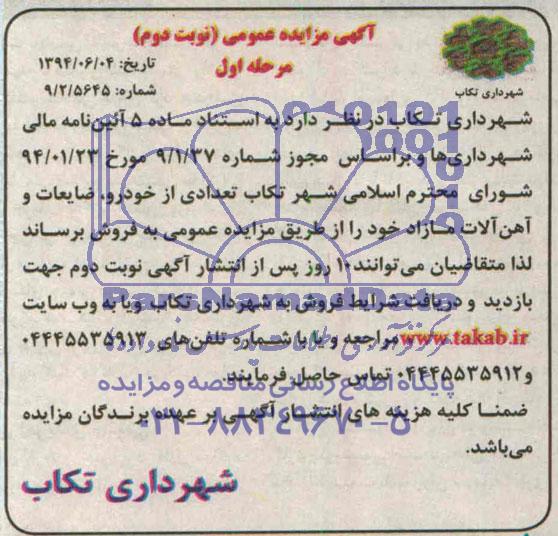 آگهی مزایده عمومی (نوبت دوم)
مرحله اول
تاریخ: ۱۳۹۴/۰۶/۰۴
شماره: ۹/۲/۵۶۴۵
شهرداری تکاب
شهرداری تکاب در نظر دارد به استناد ماده ۵ آئین‌نامه مالی
شهرداری‌ها و براساس مجوز شماره ۹/۱/۳۷ مورخ ۹۴/۰۱/۲۳
شورای محترم اسلامی شهر تکاب تعدادی از خودرو، ضایعات و
آهن‌آلات مازاد خود را از طریق مزایده عمومی به فروش برساند
لذا متقاضیان می‌توانند ۱۰ روز پس از انتشار آگهی نوبت دوم جهت
بازدید و دریافت شرایط فروش به شهرداری تکاب ویا به وب سایت
www.takab.ir مراجعه و یا با شماره تلفن‌های ۰۴۴۴۵۵۳۵۹۱۳
و ۰۴۴۴۵۵۳۵۹۱۲ تماس حاصل فرمایند.
ضمنا کلیه هزینه های انتشار آگهی بر عهده برندگان مزایده
می‌باشد.
شهرداری تکاب
ParsNamadData
پایگاه اطلاع رسانی مناقصه و مزایده
۰۲۱-۸۸۳۴۹۶۷۰-۵